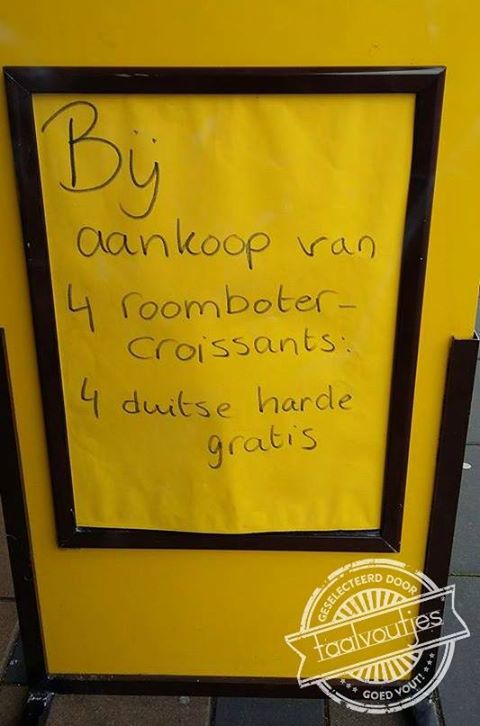 Bij
aankoop van
4 roomboter-
croissants:
4 duitse harde
gratis
GESELECTEERD DOOR
taalvoutjes
GOED VOUT!